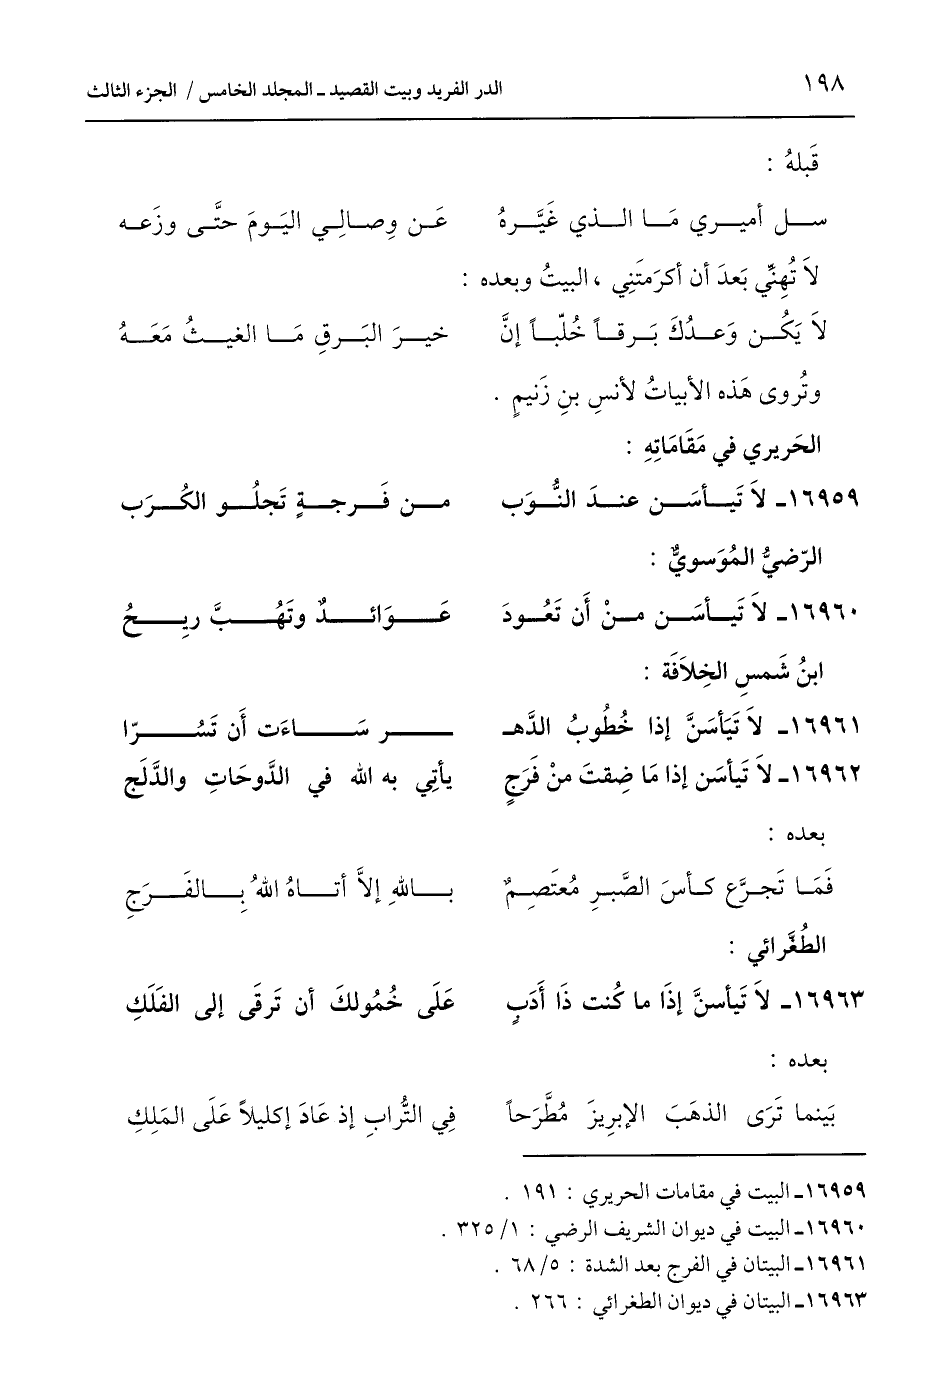 ١٩٨ الدر الفريد وبيت القصيد ـ المجلد الخامس / الجزء الثالث
قَبلهُ :
سـل أميـري مَـا الـذي غَيَّـرهُ عَـن وِصـالِـي اليَـومَ حتَّـى وزَعـه
لاَ تُهِنِّي بَعدَ أن أكرَمتَنِي ، البيتُ وبعده :
لاَ يَكُـن وَعـدُكَ بَـرقـاً خُلَّبـاً إنَّ خيـرَ البَـرقِ مَـا الغيـثُ مَعَـهُ
وتُروى هَذه الأبياتُ لأنسِ بنِ زَنيمٍ .
الحَريري في مَقَامَاتِهِ :
١٦٩٥٩ـ لاَ تَيـأسَـن عنـدَ النُّوَب مـن فَـرجـةٍ تَجلُـو الكُـرَب
الرّضيُّ المُوَسويٌّ :
١٦٩٦٠ـ لاَ تَيـأسَـن مـنْ أَن تَعُـودَ عَـوَائـدٌ وتَهُـبَّ ريـحُ
ابنُ شَمسِ الخِلاَفَة :
١٦٩٦١ـ لاَ تَيَأسَنَّ إذا خُطُوبُ الدَّهـ ـر سَـاءَت أَن تَسُـرّا
١٦٩٦٢ـ لاَ تَيأسَن إذا مَا ضِقتَ منْ فَرَجٍ يأتِي به الله في الدَّوحَاتِ والدَّلَجِ
بعده :
فَمَـا تَجـرَّع كـأسَ الصَّبـرِ مُعتَصِـمٌ بـاللهِ إلاَّ أتـاهُ اللهُ بِـالفَـرَجِ
الطُغَّرائي :
١٦٩٦٣ـ لاَ تَيأسنَّ إذَا ما كُنت ذَا أَدَبٍ عَلَى خُمُولكَ أن تَرقَى إلى الفَلَكِ
بعده :
بَينما تَرَى الذهَبَ الإبريزَ مُطَّرَحاً فِي التُّرابِ إذ عَادَ إكليلاً عَلَى المَلِكِ
١٦٩٥٩ـ البيت في مقامات الحريري : ١٩١ .
١٦٩٦٠ـ البيت في ديوان الشريف الرضي : ١/ ٣٢٥ .
١٦٩٦١ـ البيتان في الفرج بعد الشدة : ٥/ ٦٨ .
١٦٩٦٣ـ البيتان في ديوان الطغرائي : ٢٦٦ .